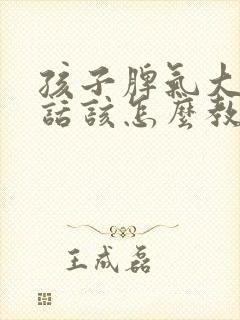 孩子脾氣大
話該怎麼教
王成磊